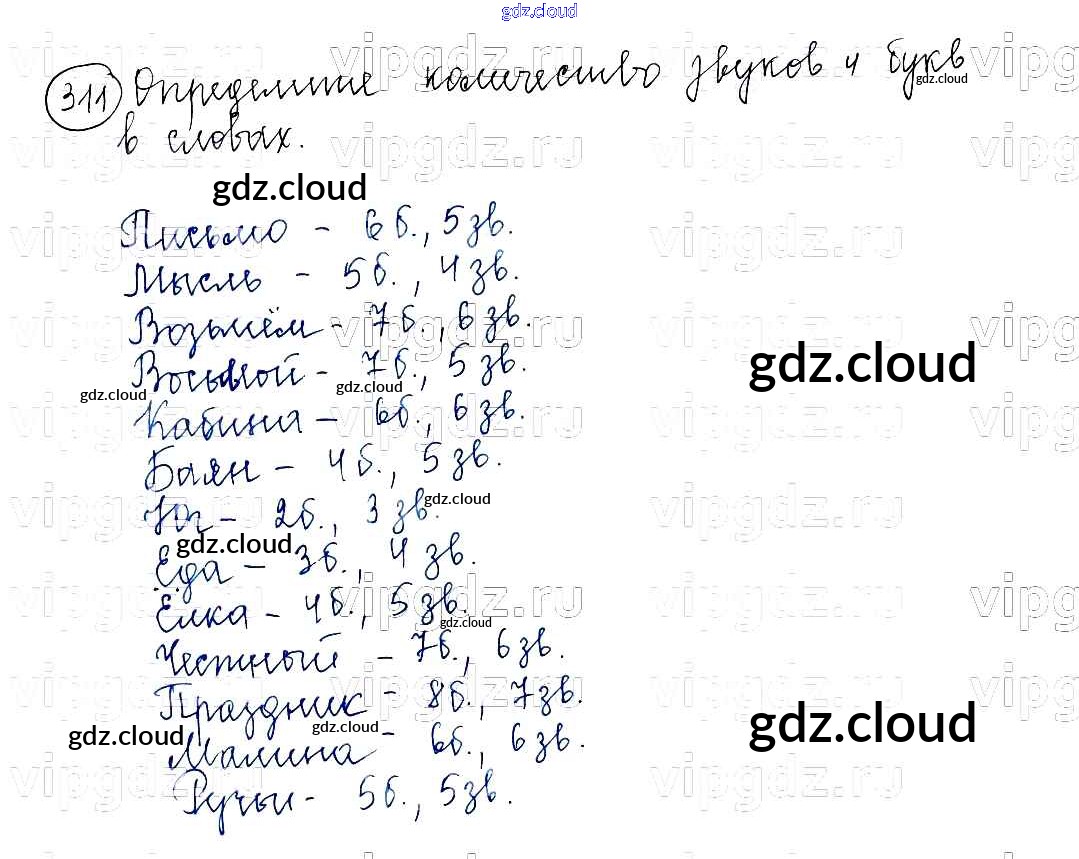 gdz.cloud
311 Определите количество звуков и букв
gdz.cloud
в словах.
vipgdz.ru vipgdz.ru vipgdz.ru vipgdz
gdz.cloud
Письмо - 6 б., 5 зв.
Мысль - 5 б., 4 зв.
Возьмём - 7 б., 6 зв.
Восьмой - 7 б., 5 зв.
gdz.cloud
gdz.cloud gdz.cloud
Кабина - 6 б., 6 зв.
Баян - 4 б., 5 зв.
gdz.cloud
Юг - 2 б., 3 зв.
gdz.cloud
Еда - 3 б., 4 зв.
Ёлка - 4 б., 5 зв.
gdz.cloud
Честный - 7 б., 6 зв.
Праздник - 8 б., 7 зв.
gdz.cloud gdz.cloud gdz.cloud
Малина - 6 б., 6 зв.
Ручьи - 5 б., 5 зв.